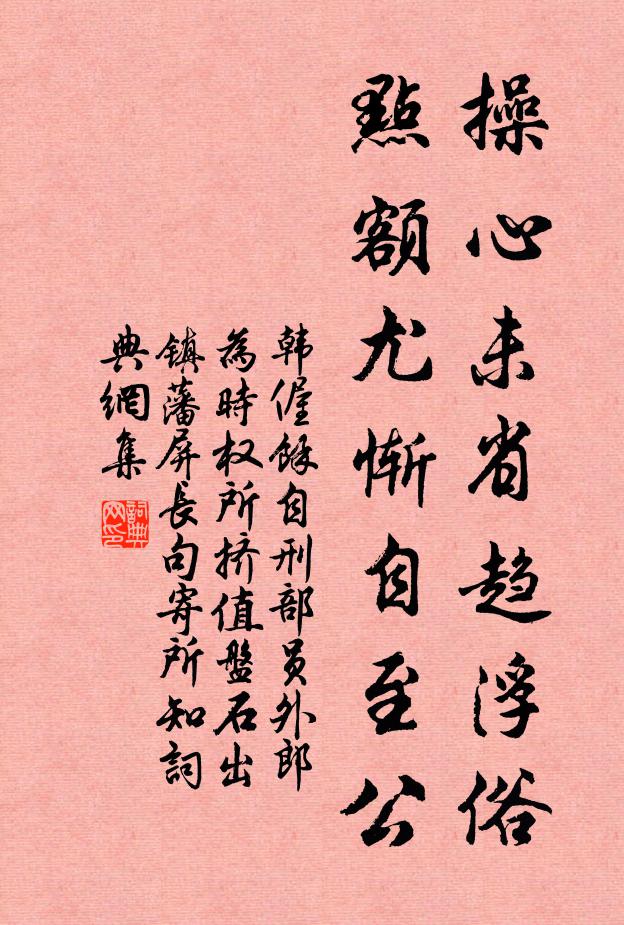 操心未省趋浮俗
點額尤惭自至公
韩偓餘自刑部员外郎
為時权所挤值盤石出
镇藩屏長句寄所知詞
典網集
詞典
网印